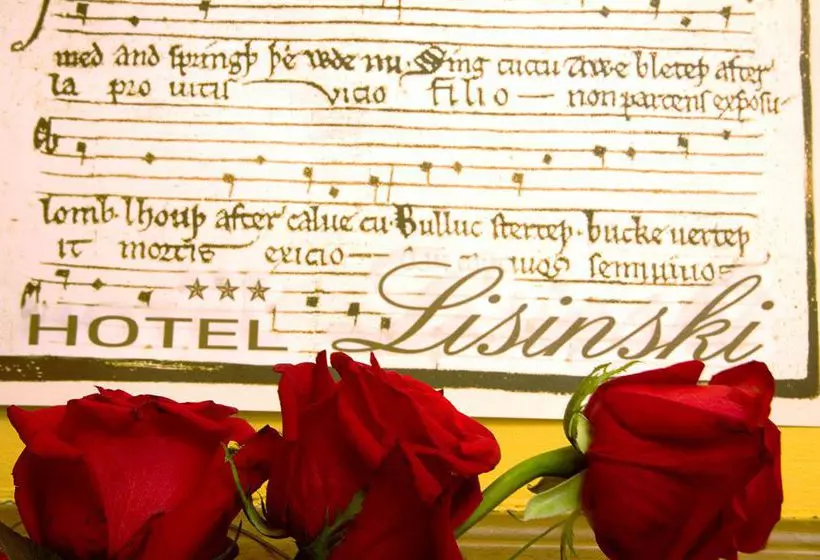 med and springþ þe wde nu. Sing cuccu Awe bleteþ after
la pro uitis vicio filio — non parcens exposu-
lomb. lhouþ after calue cu. Bulluc sterteþ. bucke uerteþ
it mortis exicio — semiuiuos
★★★
HOTEL Lisinski